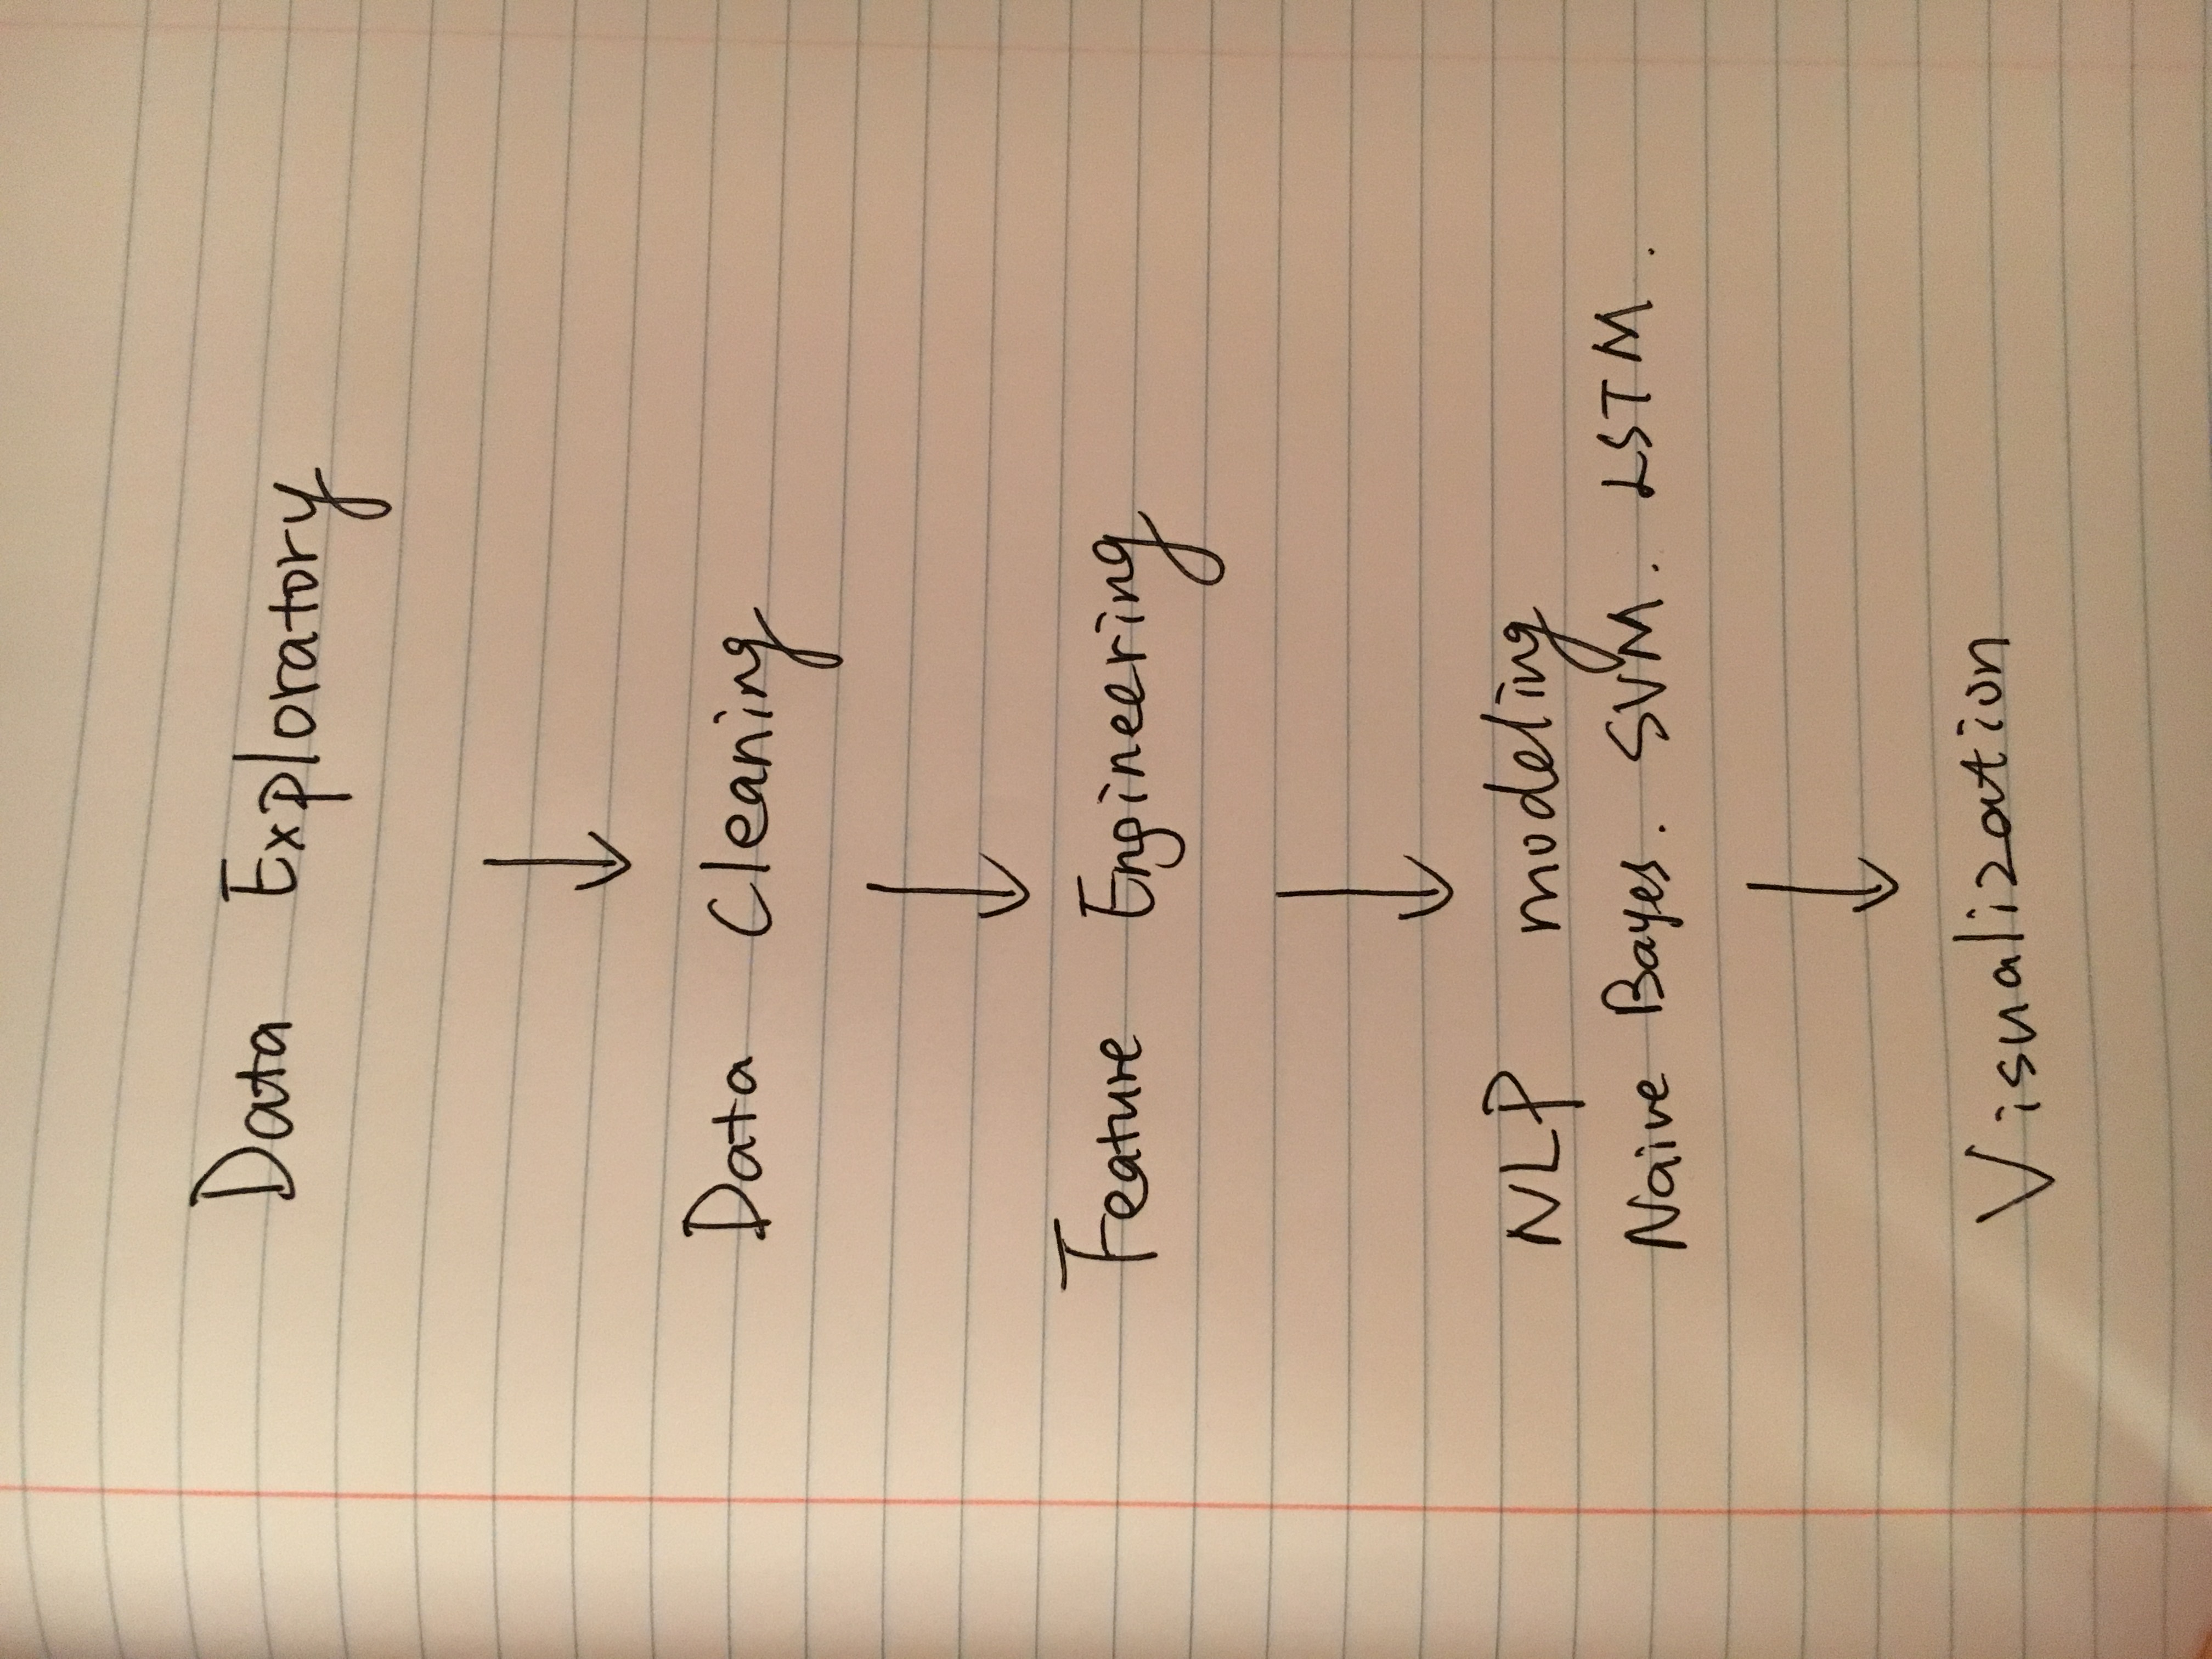 Data Exploratory
↓
Data Cleaning
↓
Feature Engineering
↓
NLP modeling
Naive Bayes. SVM. LSTM.
↓
Visualization